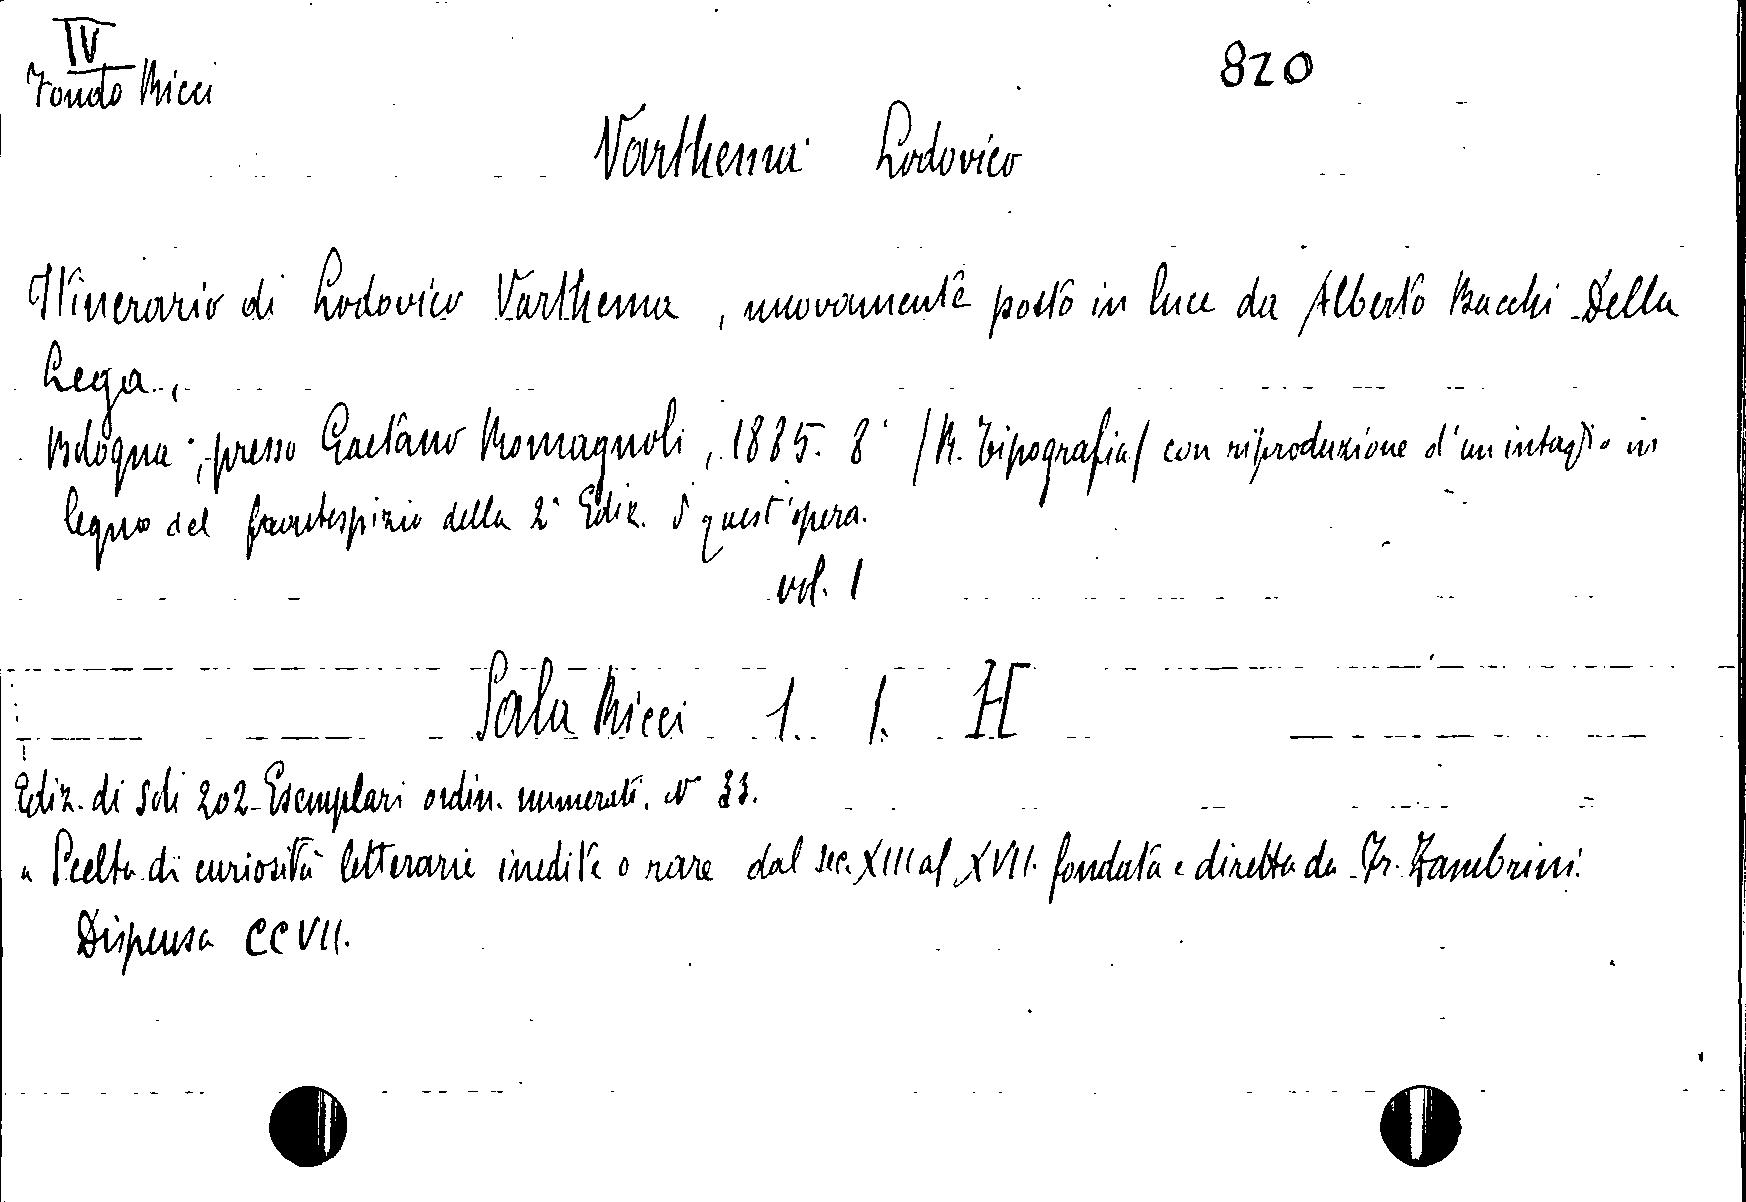 IV
Fondo Ricci
820
Varthema Lodovico
Itinerario di Lodovico Varthema, nuovamente posto in luce da Alberto Bacchi Della
Lega,
Bologna, presso Gaetano Romagnoli, 1885. 8° /R. Tipografia/ con riproduzione d'un intaglio in
legno del frontespizio della 2ª Ediz. d quest'opera.
vol. 1
Sala Ricci 1. 1. H
Ediz. di soli 202 Esemplari ordin. numerati. N° 33.
" Scelta di curiosità letterarie inedite o rare dal sec. XIII al XVII. fondata e diretta da Fr. Zambrini.
Dispensa CCVII.